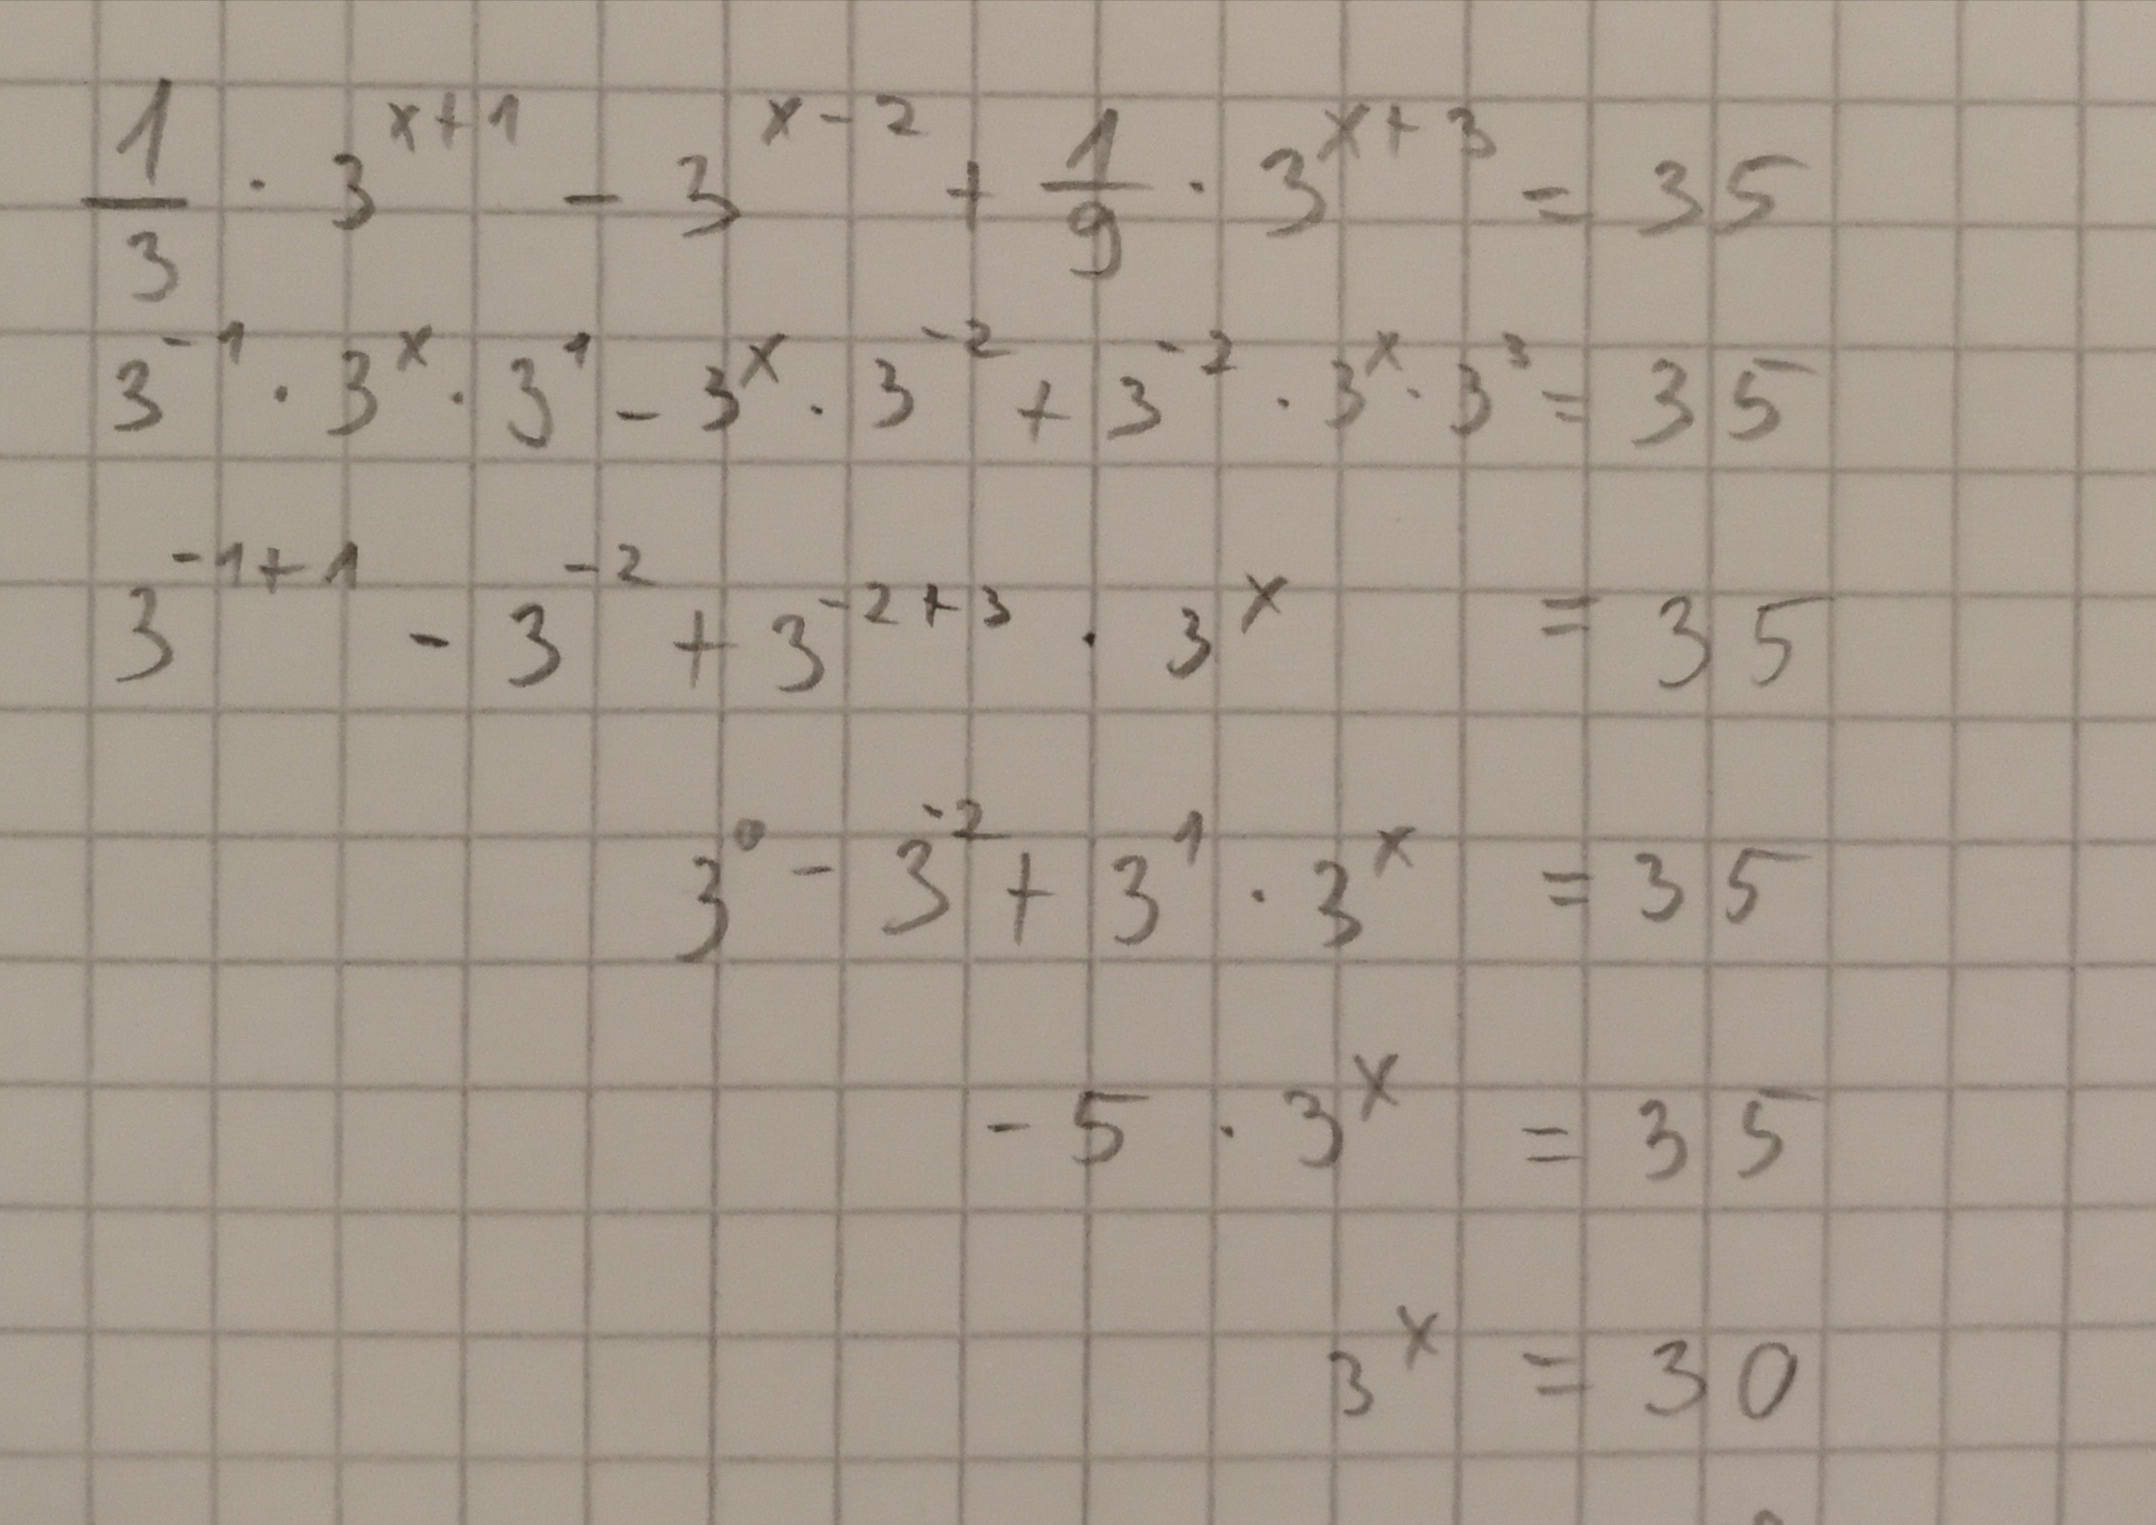 1/3 · 3^(x+1) - 3^(x-2) + 1/9 · 3^(x+3) = 35
3^(-1) · 3^x · 3^1 - 3^x · 3^(-2) + 3^(-2) · 3^x · 3^3 = 35
3^(-1+1) - 3^(-2) + 3^(-2+3) · 3^x = 35
3^0 - 3^(-2) + 3^1 · 3^x = 35
-5 · 3^x = 35
3^x = 30